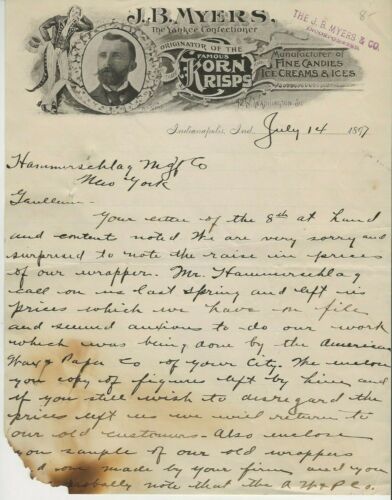 J.B. MYERS,
The Yankee Confectioner
THE J. B. MYERS & CO.
INCORPORATED.
ORIGINATOR OF THE
FAMOUS
KORN
KRISPS
Manufacturer of
FINE CANDIES
ICE CREAMS & ICES
WASHINGTON ST.
Indianapolis, Ind. July 14 1897
Hammerschlag Mfg Co
New York
Gentlemen-
Your letter of the 8th at hand
and content noted We are very sorry and
surprised to note the raise in prices
of our wrapper. Mr. Hammerschlag
call on us last spring and left us
prices which we have on file
and seemed anxious to do our work
which was being done by the American
Wax & Paper Co of your City. We enclose
you copy of figures left by him and
if you still wish to disregard the
prices left us we will return to
our old customers. Also enclose
you sample of our old wrappers
and one made by your firm and you
probably note that the A W & P Co.